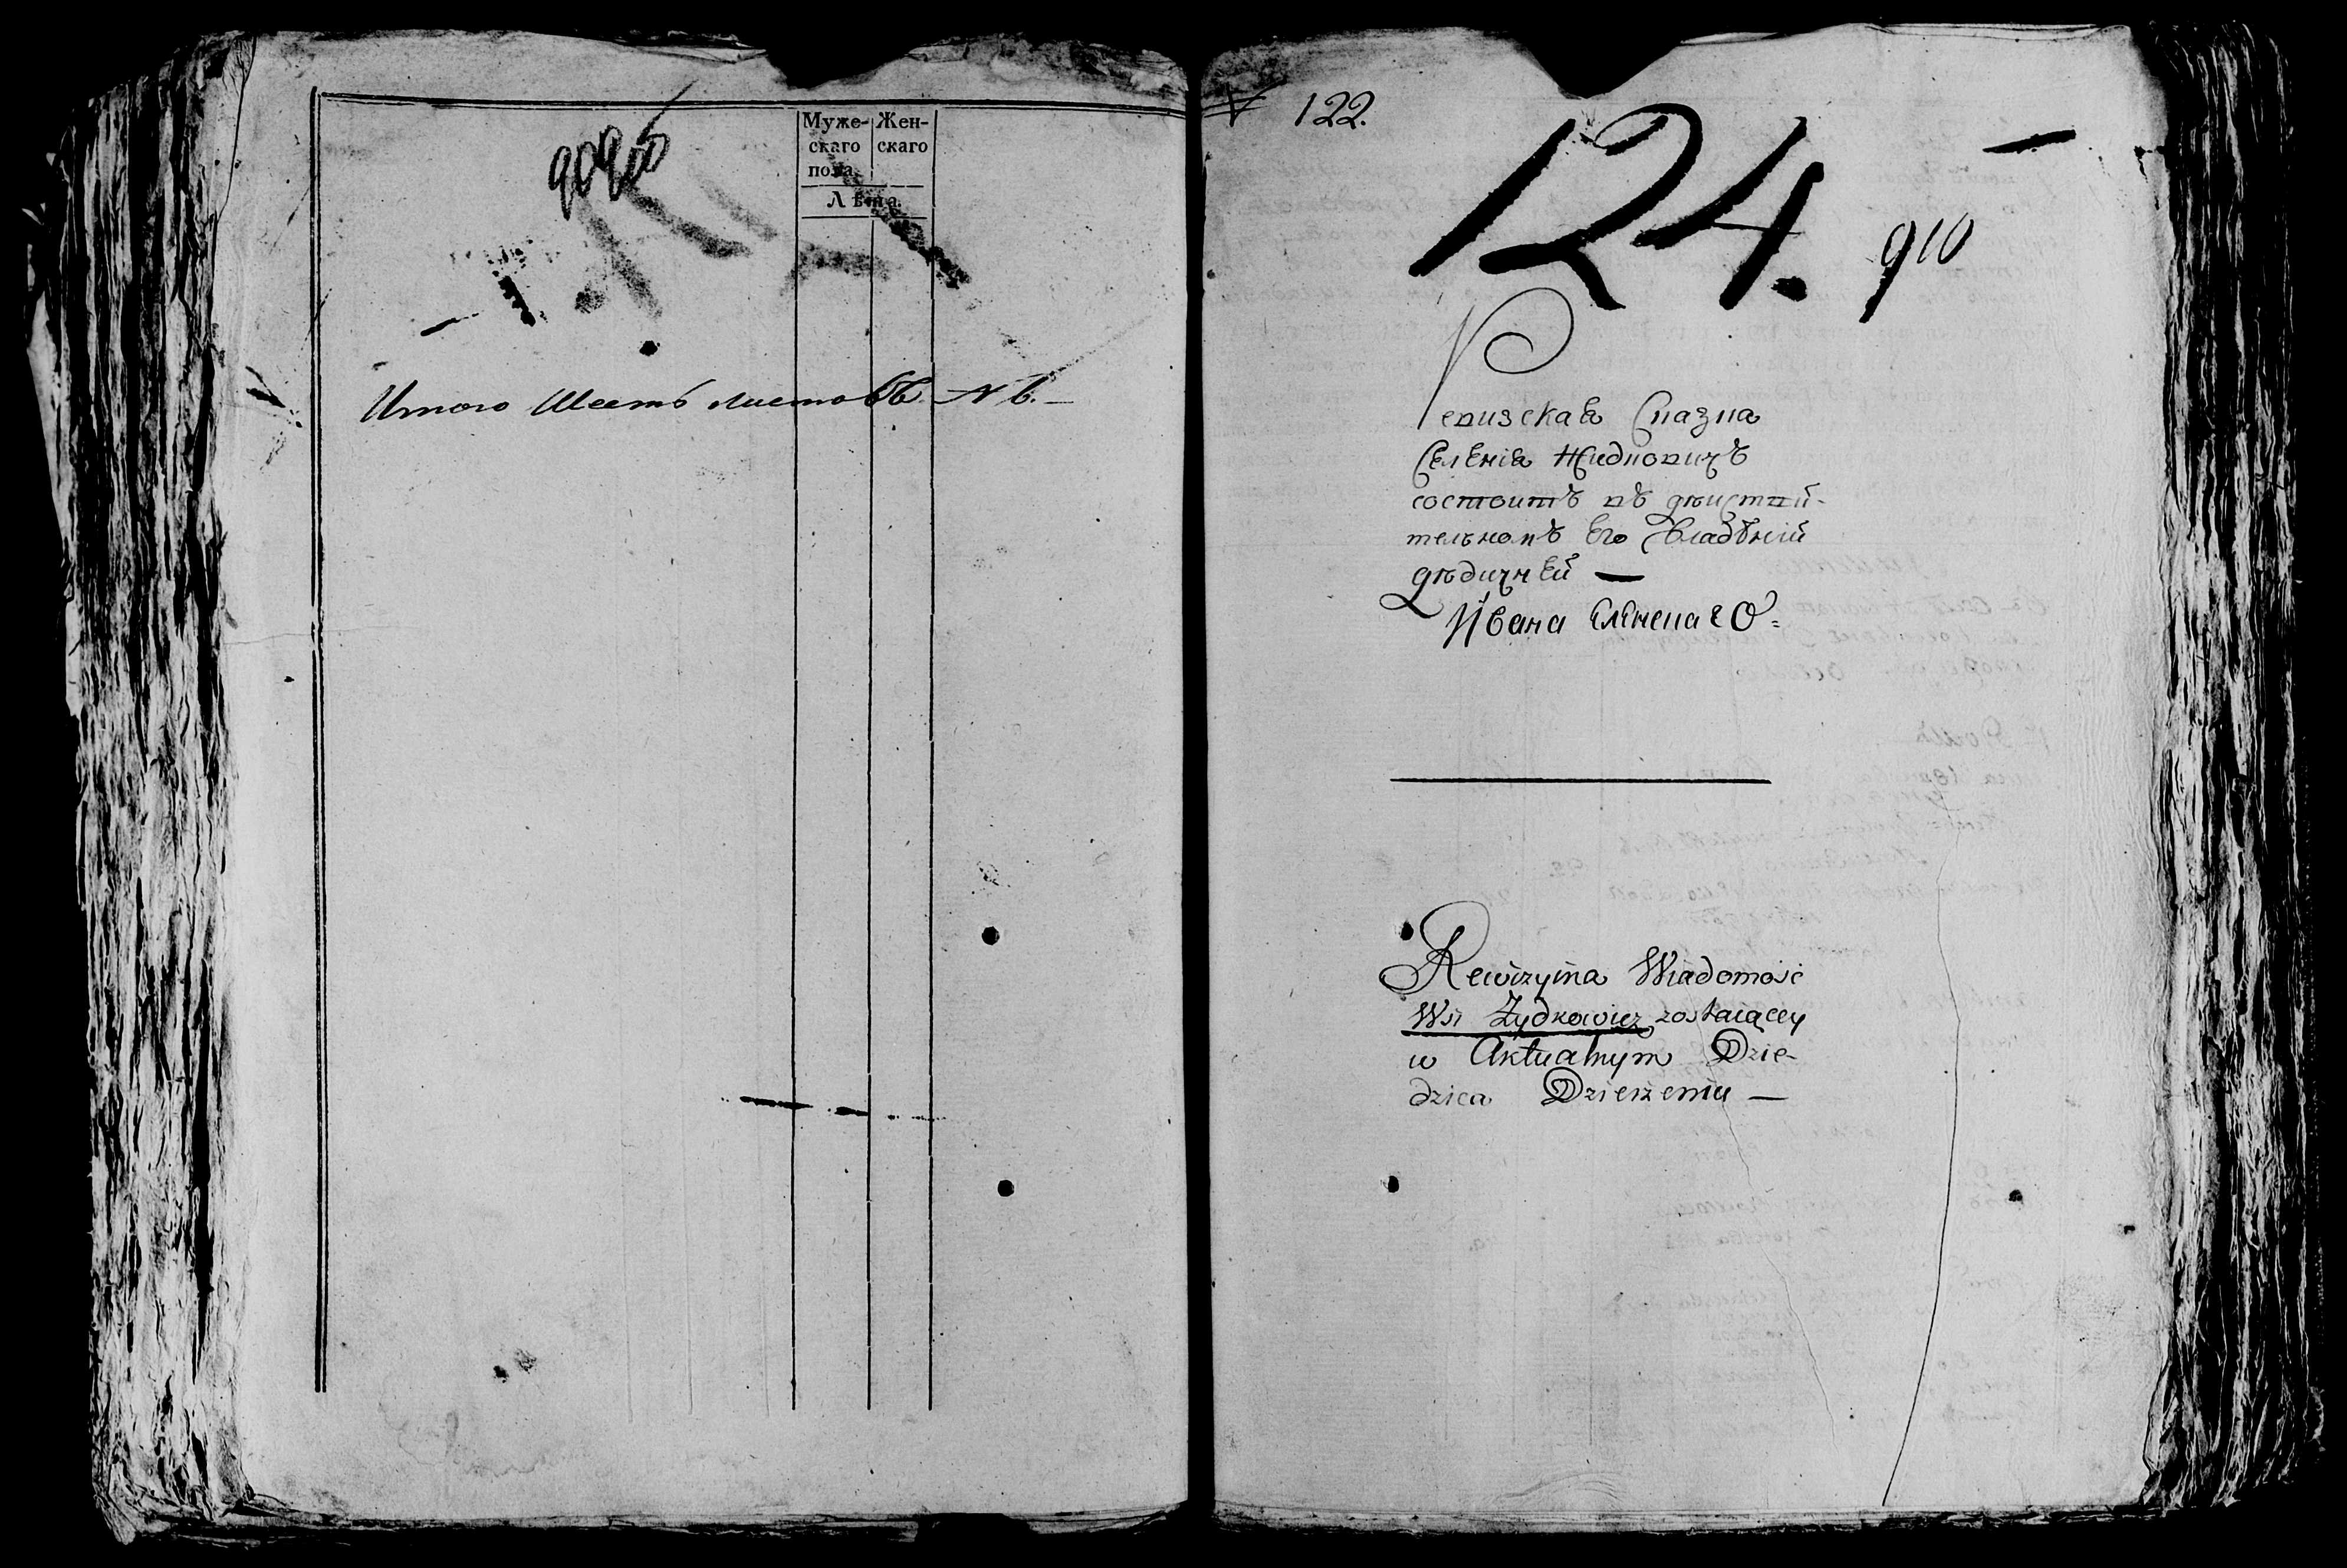 Муже-
скаго
пола.
Жен-
скаго
Лѣта.
Итого Шесть листовъ N 6.
122.
124.
910
Ревизская Сказка
Селенія Жидковичъ
состоитъ въ дѣиствй-
тельномъ Его Владѣніи
дѣдичней —
Ивана
Rewizyina Wiadomość
Wsi Żydkowicz zostaiącey
w Aktualnym Dzie-
dzica Dzierzeniu —